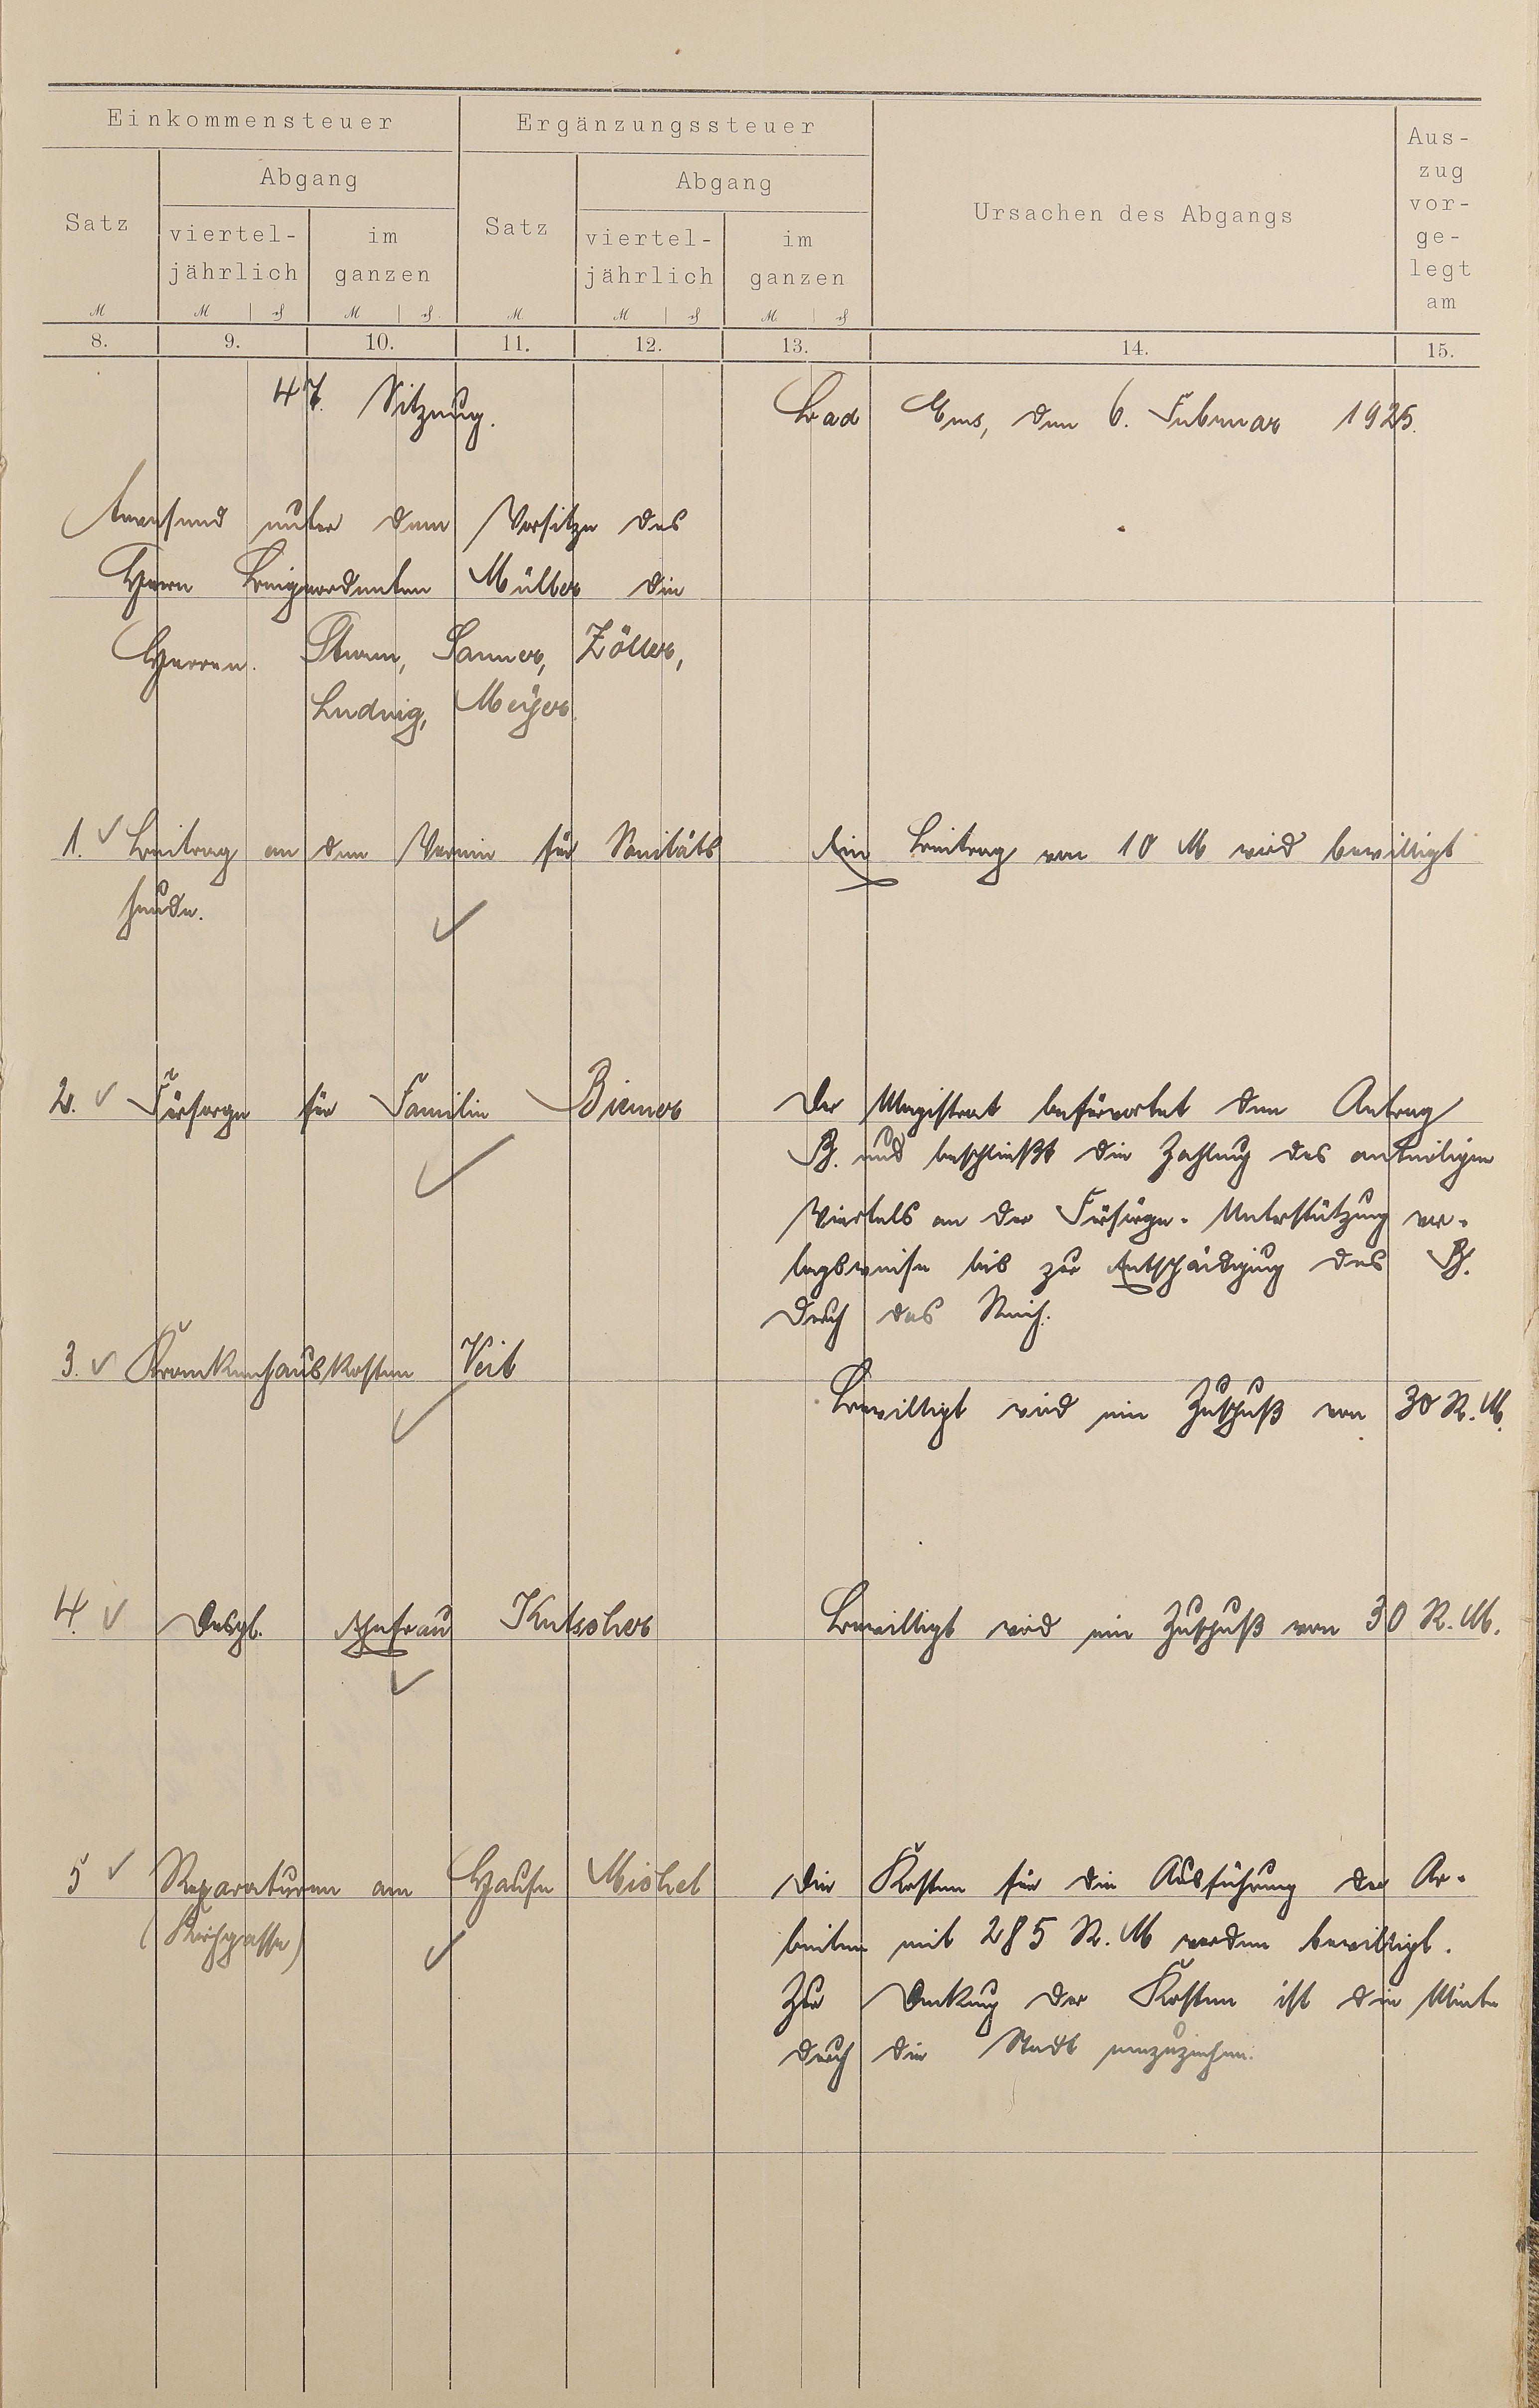 Einkommensteuer
Ergänzungssteuer
Ursachen des Abgangs
Aus-
zug
vor-
ge-
legt
am
Satz
Abgang
viertel-
jährlich
im
ganzen
Satz
Abgang
viertel-
jährlich
im
ganzen
M M ₰ M ₰ M M ₰ M ₰
8. 9. 10. 11. 12. 13. 14. 15.
47. Sitzung.
Bad Ems, den 6. Februar 1925.
Anwesend unter dem Vorsitze des
Herrn Beigeordneten Müller die
Herren. Sturm, Sanner, Zöller,
Ludwig, Meyer.
1. ✓ Beitrag an den Verein für Sanitäts
hunde.
Ein Beitrag von 10 M wird bewilligt
2. ✓ Fürsorge für Familie Biemer
Der Magistrat befürwortet den Antrag
B. und beschließt die Zahlung des anteiligen
Viertels an der Fürsorge-Unterstützung vor-
lagsweise bis zur Entschädigung des B.
durch das Reich.
3. ✓ Krankenhauskosten Veit
Bewilligt wird ein Zuschuß von 30 R.M.
4. ✓ Desgl. Ehefrau Kutscher
Bewilligt wird ein Zuschuß von 30 R.M.
5 ✓ Reparaturen am Hause Michel
(Kirchgasse)
Die Kosten für die Ausführung der Ar-
beiten mit 285 R.M werden bewilligt.
Zur Deckung der Kosten ist die Miete
durch die Stadt einzuziehen.